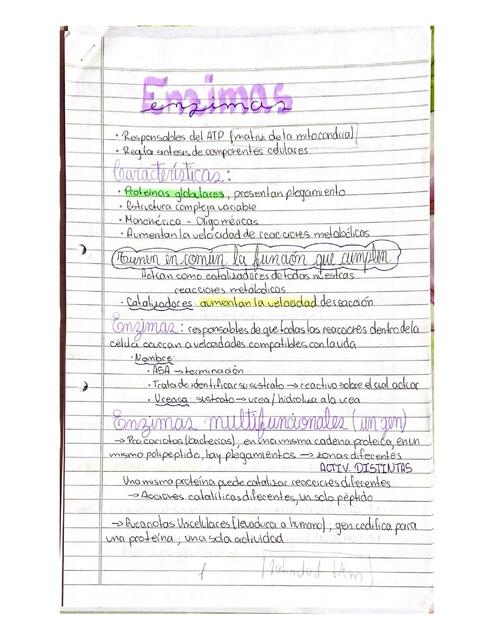 Enzimas
enzimas
· Responsables del ATP (matriz de la mitocondria)
· Regla sintesis de componentes celulares
Características:
· Proteínas globulares, presentan plegamiento
· Estructura compleja variable
· Monomérica - Oligoméricas
· Aumentan la velocidad de reacciones metabólicas
Tienen en común la función que cumplen
Actúan como catalizadores de todas nuestras
reacciones metabolicas
· Catalizadores: aumentan la velocidad de reacción
Enzimas: responsables de que todas las reacciones dentro de la
célula ocurran a velocidades compatibles con la vida
· Nombre:
· ASA → terminación
· Trata de identificar su sustrato → reactivo sobre el cual actúa
· Ureasa: sustrato → urea / hidroliza a la urea
Enzimas multifuncionales (un gen)
→ Procariotas (bacterias), en una misma cadena proteica, en un
mismo polipeptido, hay plegamientos → zonas diferentes
ACTIV. DISTINTAS
Una misma proteína puede catalizar reacciones diferentes
→ Acciones catalíticas diferentes, un solo péptido
→ Eucariotas Unicelulares (levadura a humano), gen codifica para
una proteína, una sola actividad
1